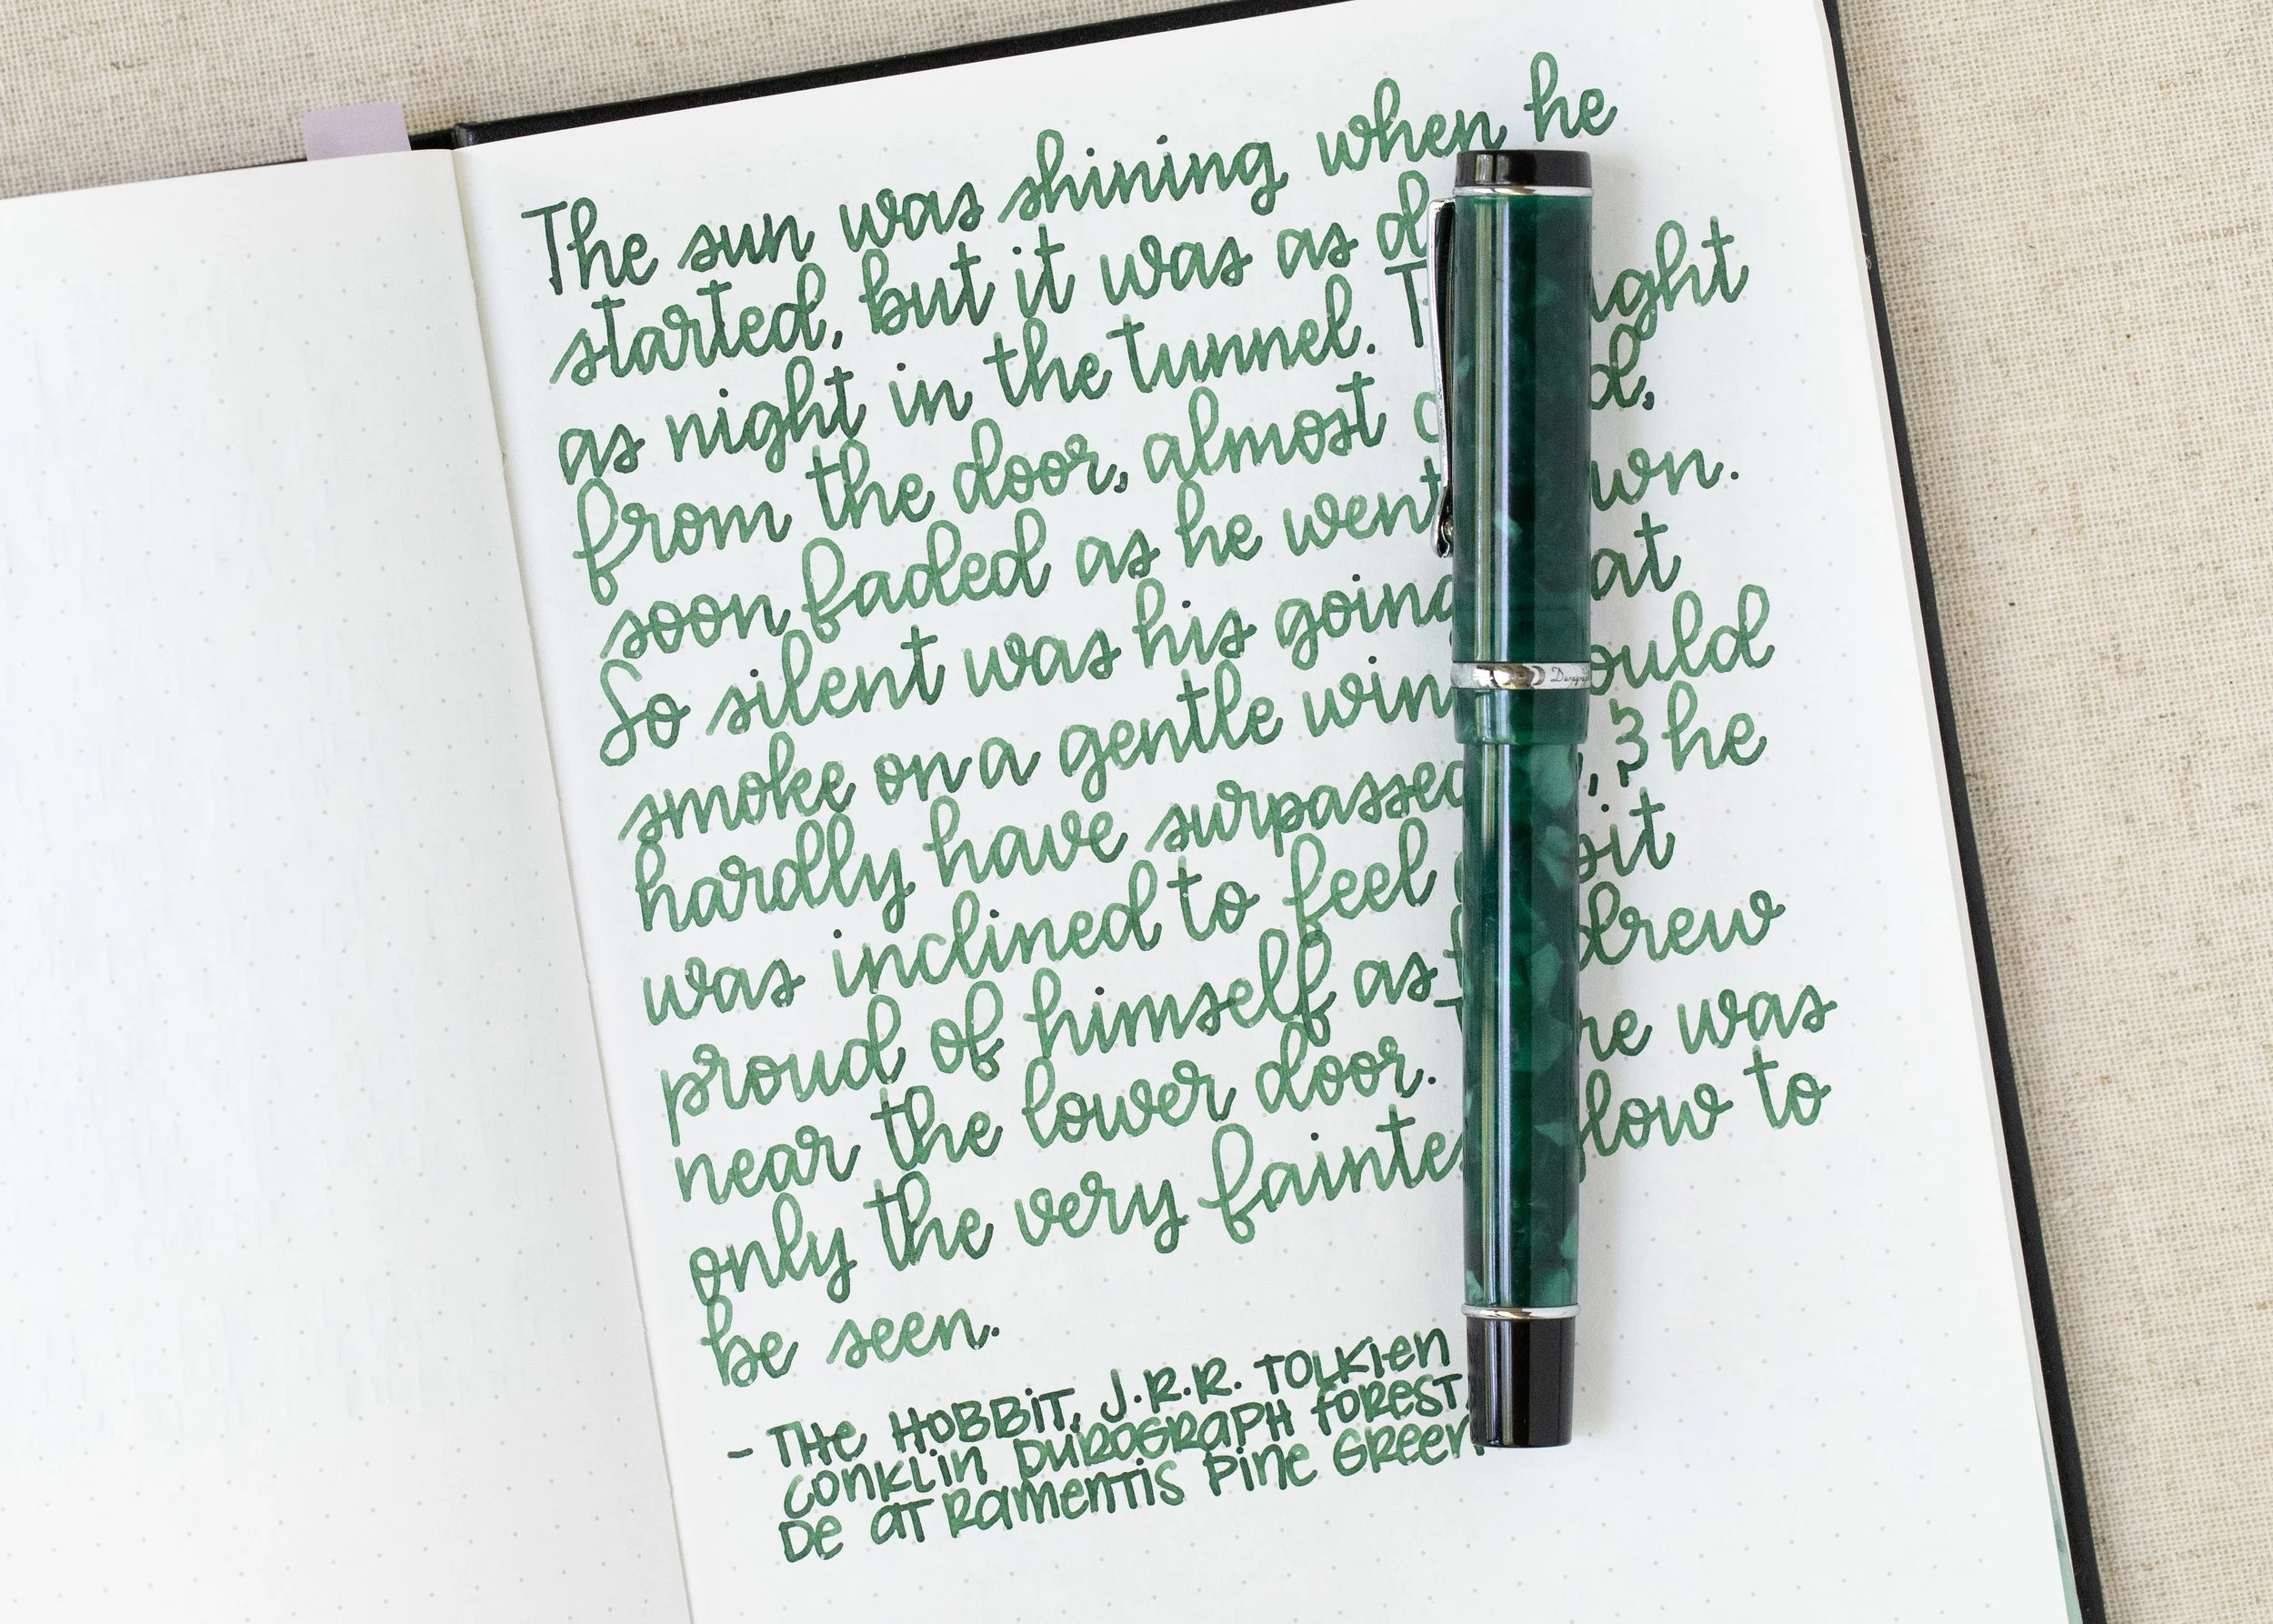 The sun was shining when he
started, but it was as
as night in the tunnel.
from the door, almost
soon faded as he went
So silent was his going
smoke on a gentle
hardly have surpassed , & he
was inclined to feel
proud of himself as drew
near the lower door. was
only the very glow to
be seen.
- THE HOBBIT, J.R.R. TOLKIEN
CONKLIN DUROGRAPH FOREST
DE ATRAMENTIS PINE GREEN